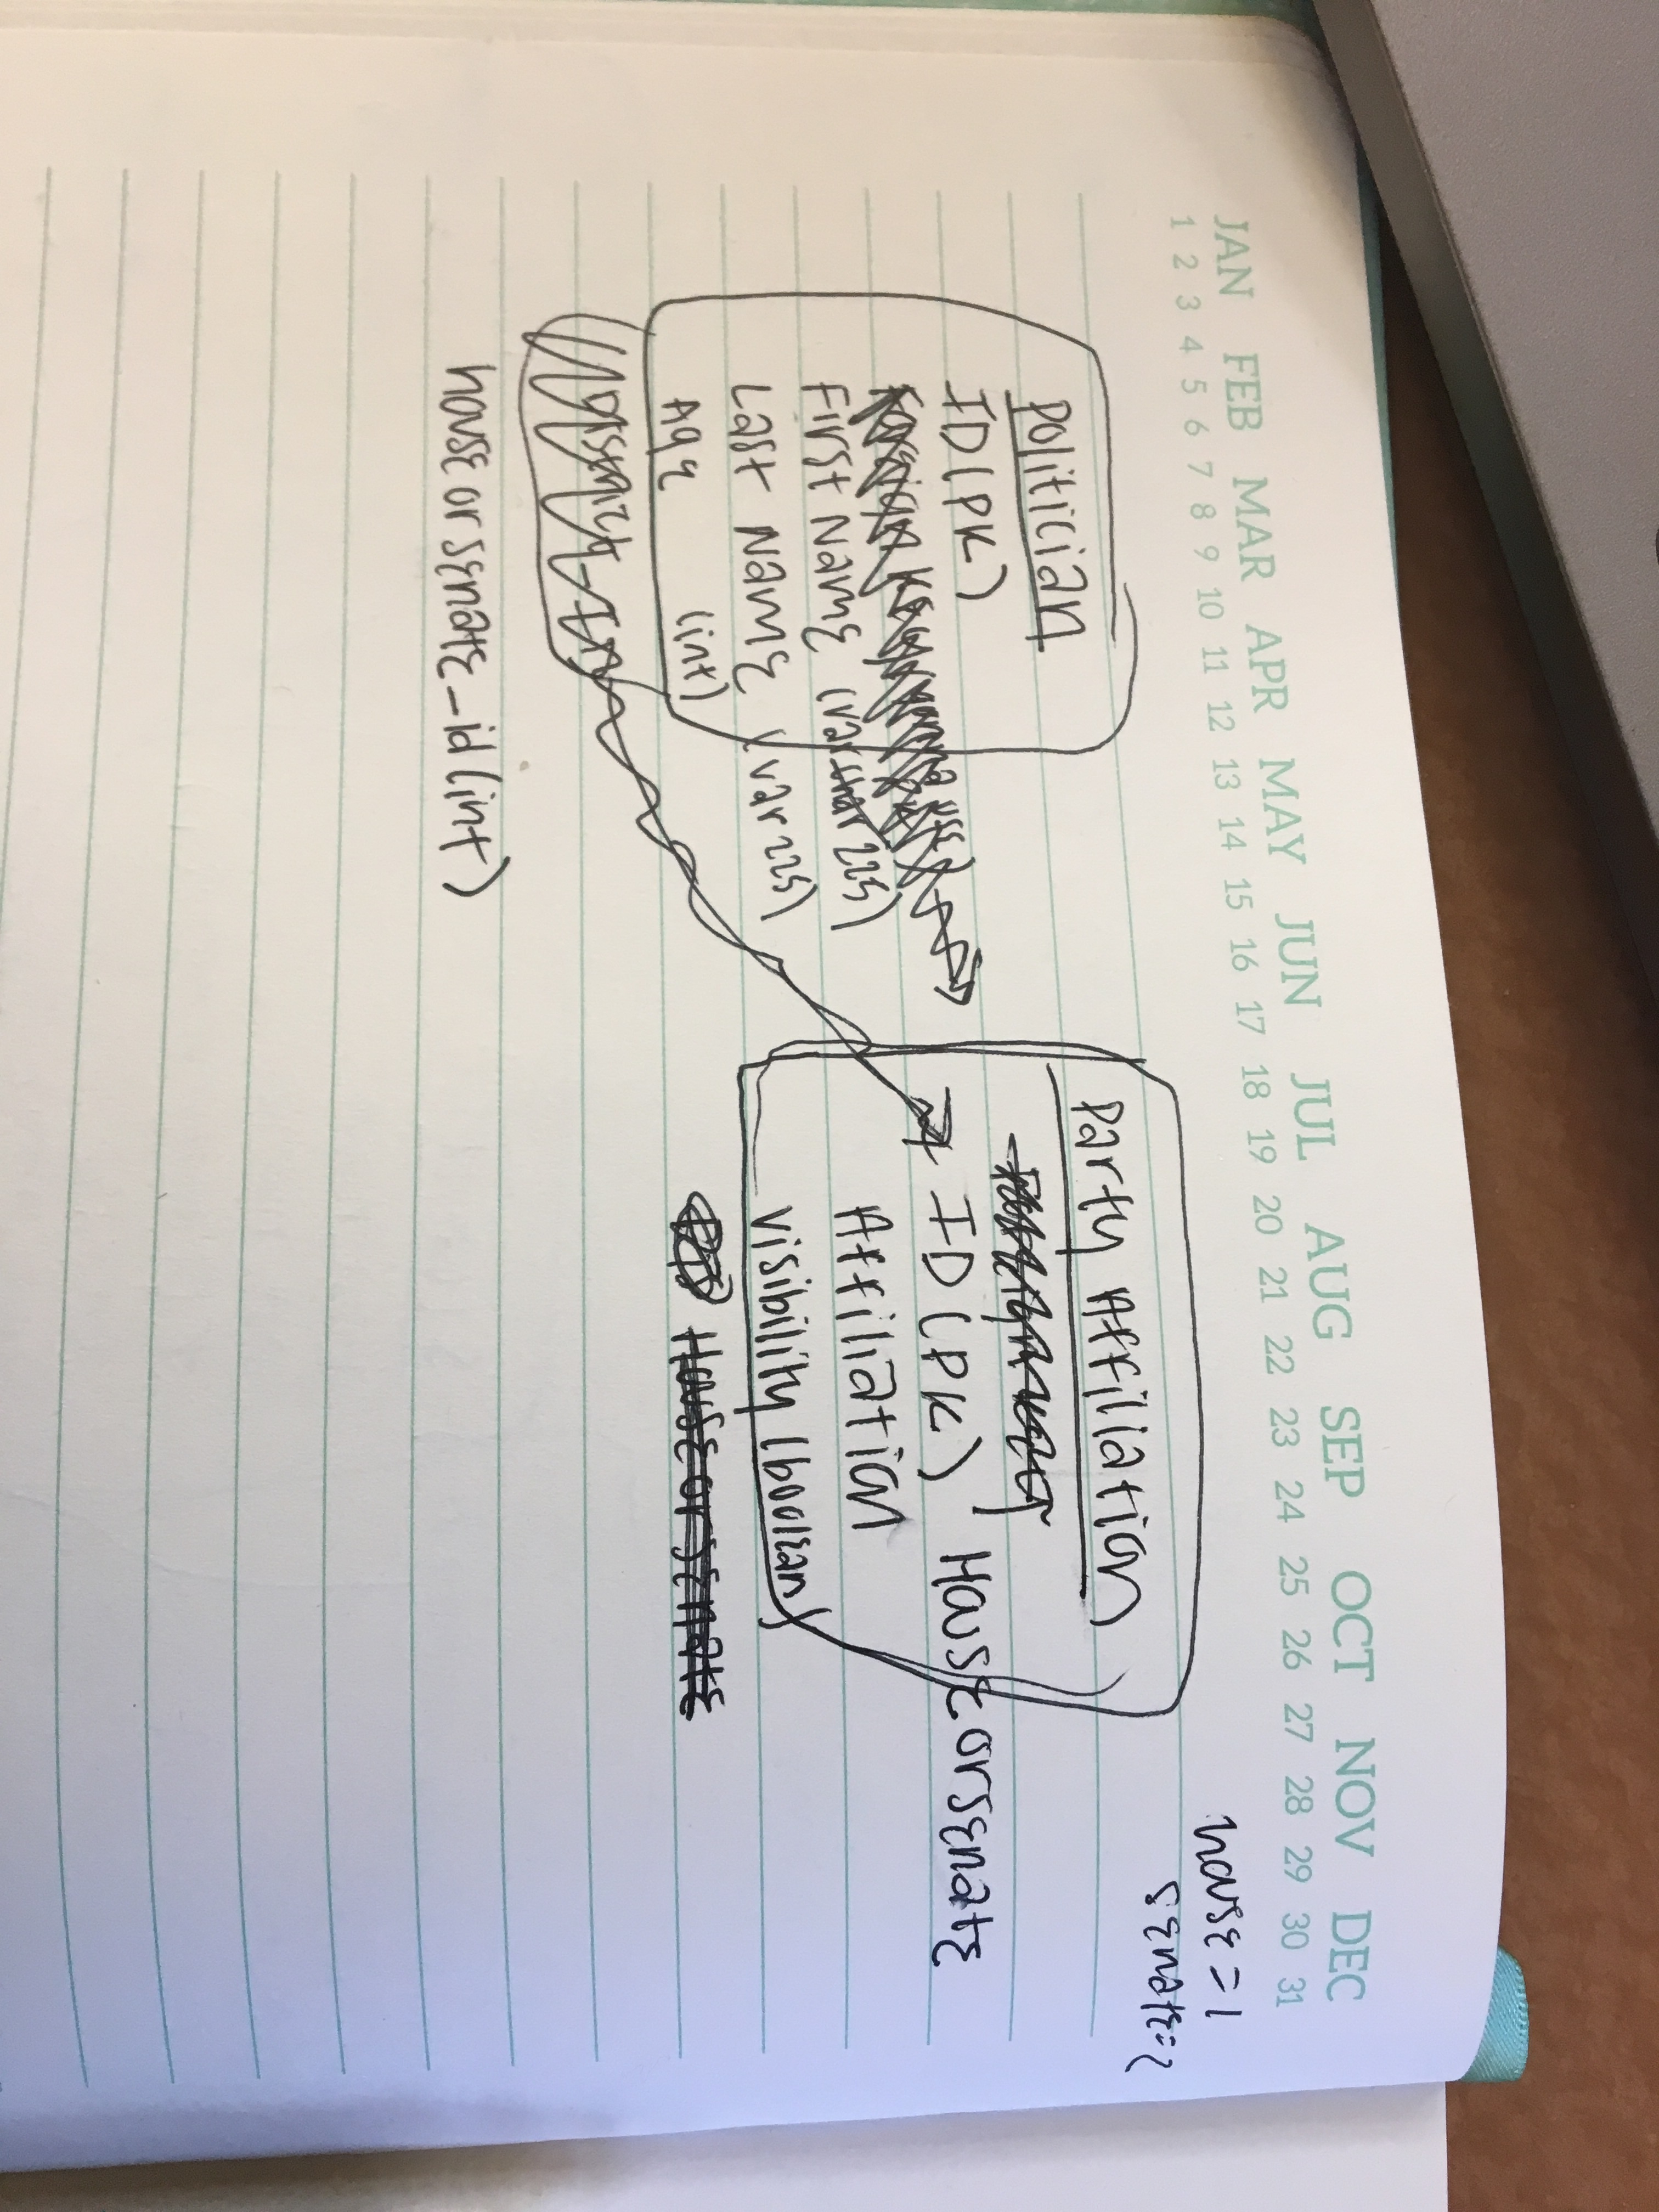 JAN FEB MAR APR MAY JUN JUL AUG SEP OCT NOV DEC
1 2 3 4 5 6 7 8 9 10 11 12 13 14 15 16 17 18 19 20 21 22 23 24 25 26 27 28 29 30 31
house = 1
senate = 2
Politician
ID (PK)
First Name (varchar 225)
Last Name (var 225)
Age (int)
house or senate_id (int)
Party Affiliation
ID (PK) House or senate
Affiliation
visibility (boolean)
House or senate